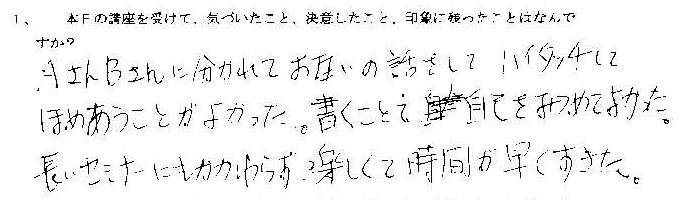 1、 本日の講座を受けて、気づいたこと、決意したこと、印象に残ったことはなんで
すか?
AさんBさんに分かれてお互いの話をして ハイタッチして
ほめあうことがよかった。書くことで 自己をみつめてよかった。
長いセミナーにもかかわらず 楽しくて時間が早くすぎた。